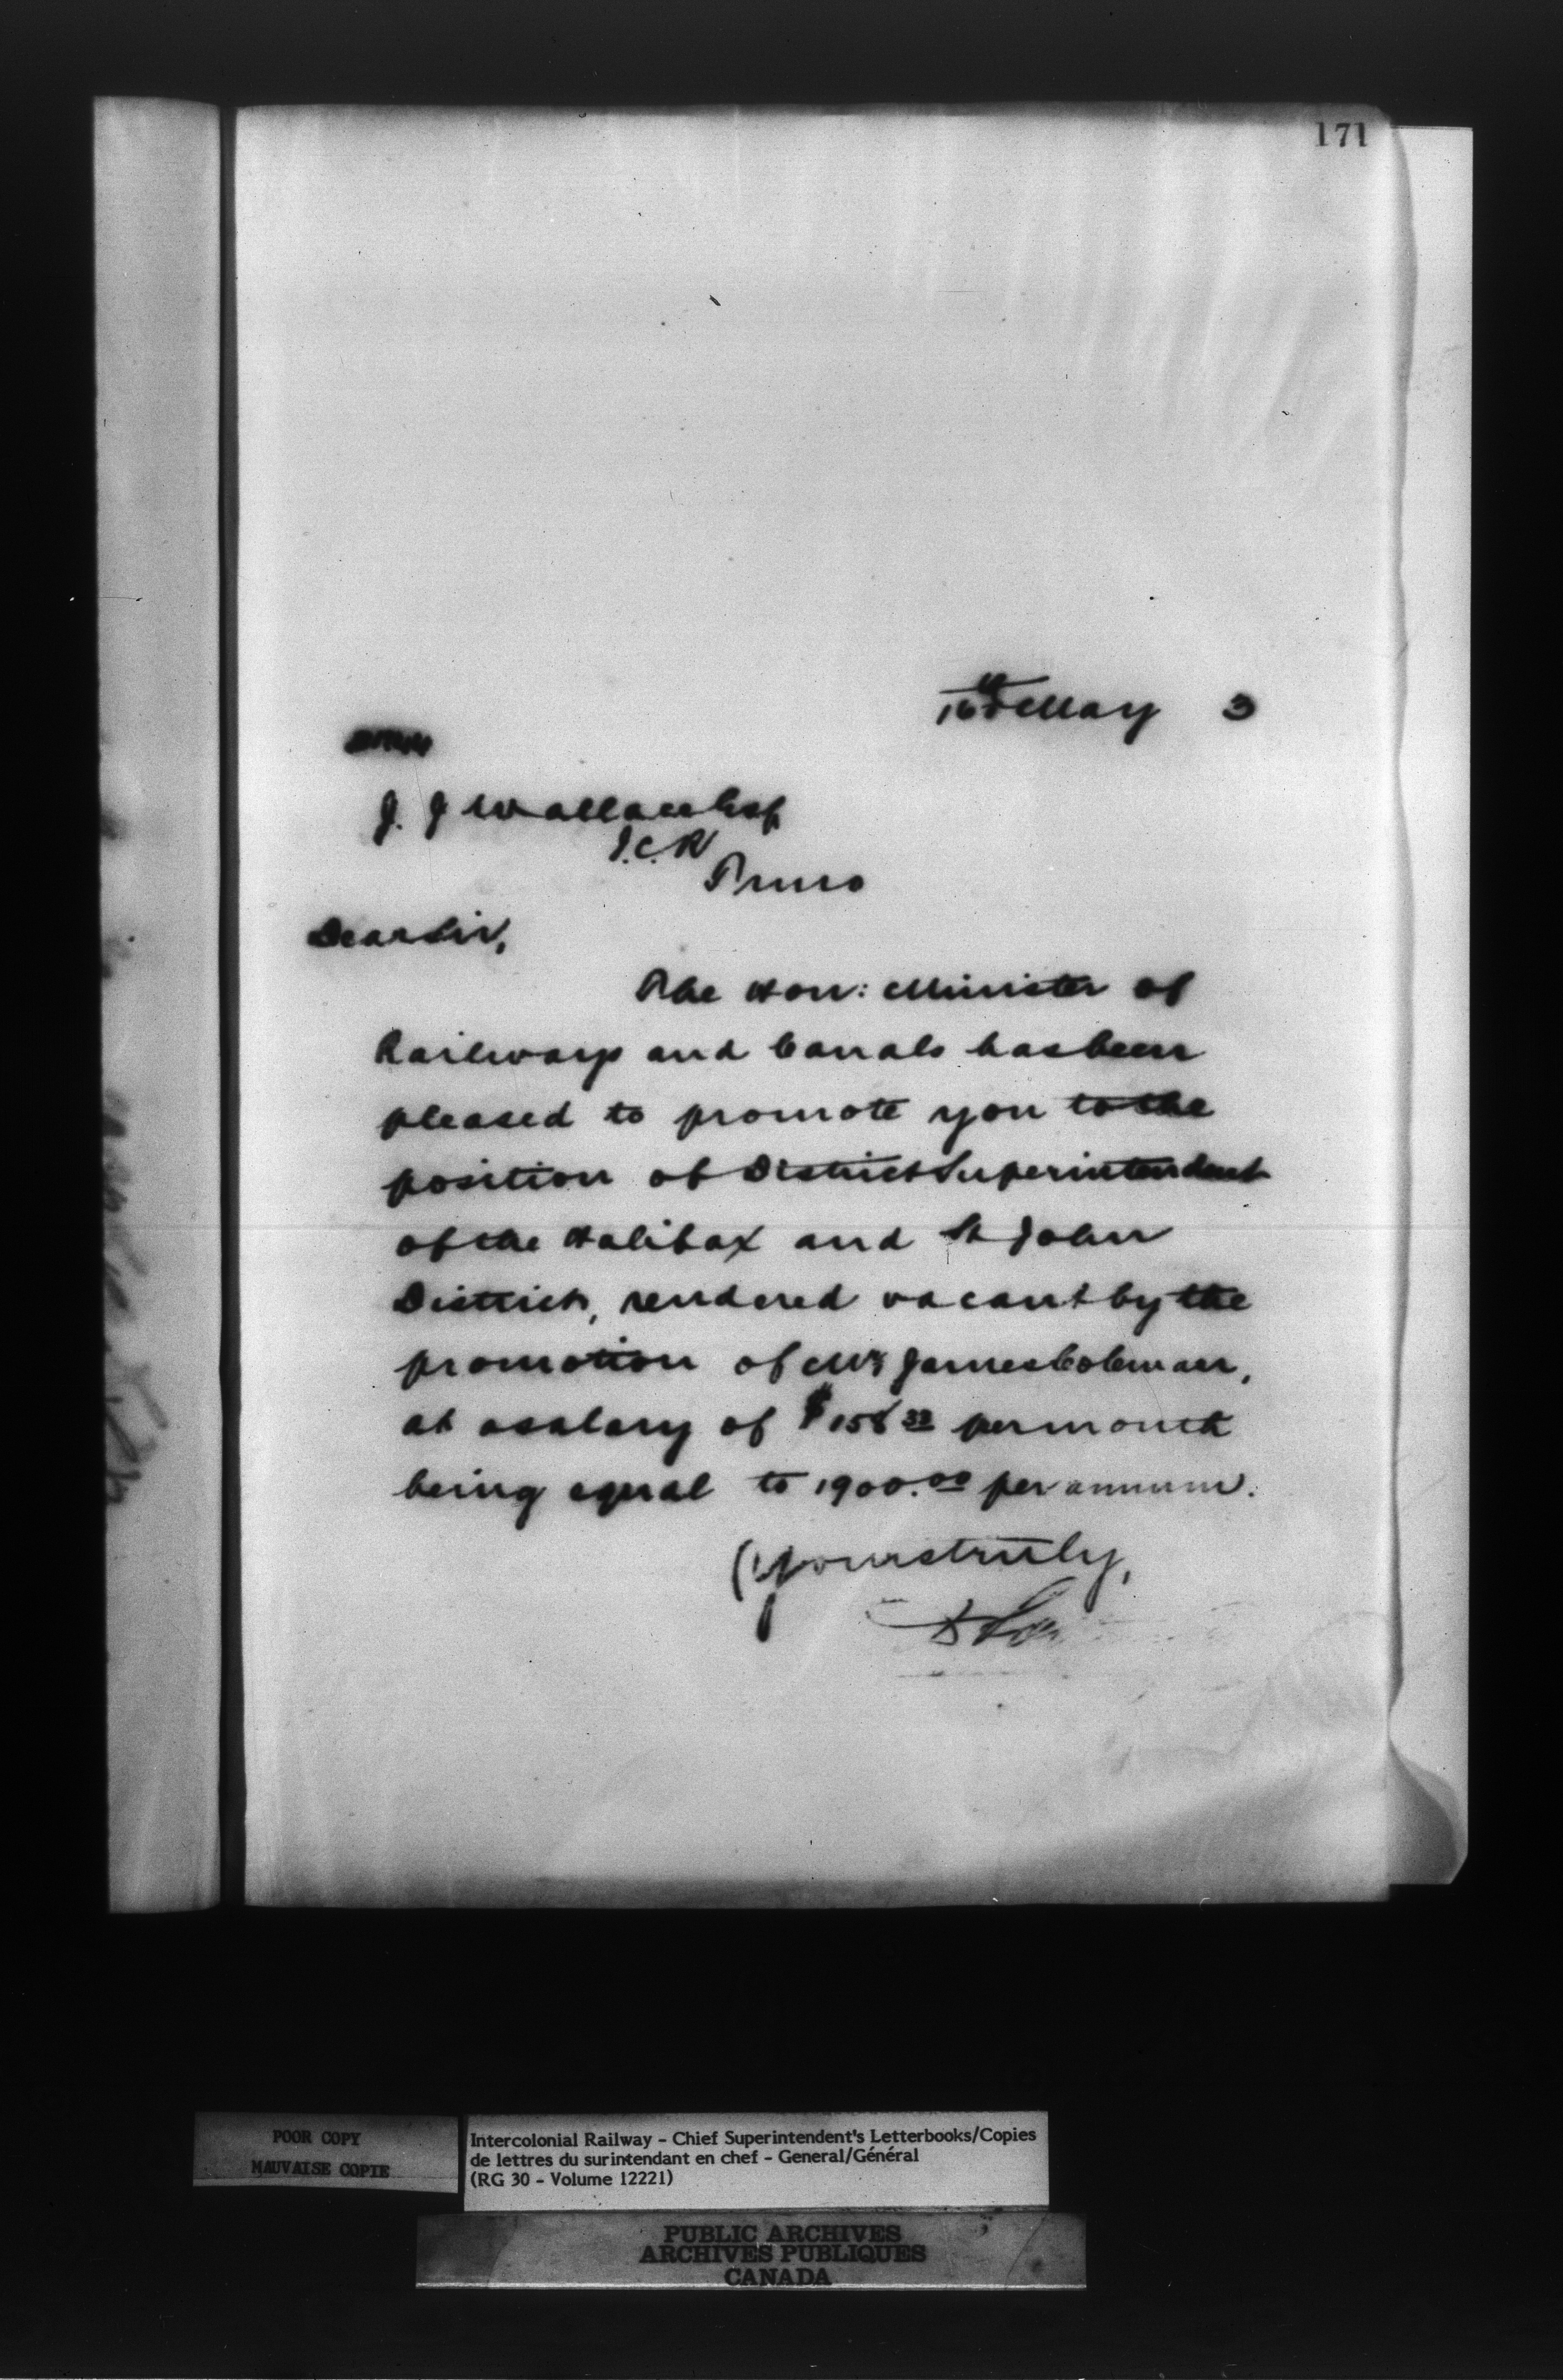 171
16th May 3
J. J Wallace Esq
I.C.R
Truro
Dear Sir,
The Hon: Minister of
Railways and Canals has been
pleased to promote you to the
position of District Superintendent
of the Halifax and St John
District, rendered vacant by the
promotion of Mr James Coleman,
at a salary of $158 33 per month
being equal to 1900.00 per annum.
Yours truly,
POOR COPY
MAUVAISE COPIE
Intercolonial Railway - Chief Superintendent's Letterbooks/Copies
de lettres du surintendant en chef - General/Général
(RG 30 - Volume 12221)
PUBLIC ARCHIVES
ARCHIVES PUBLIQUES
CANADA